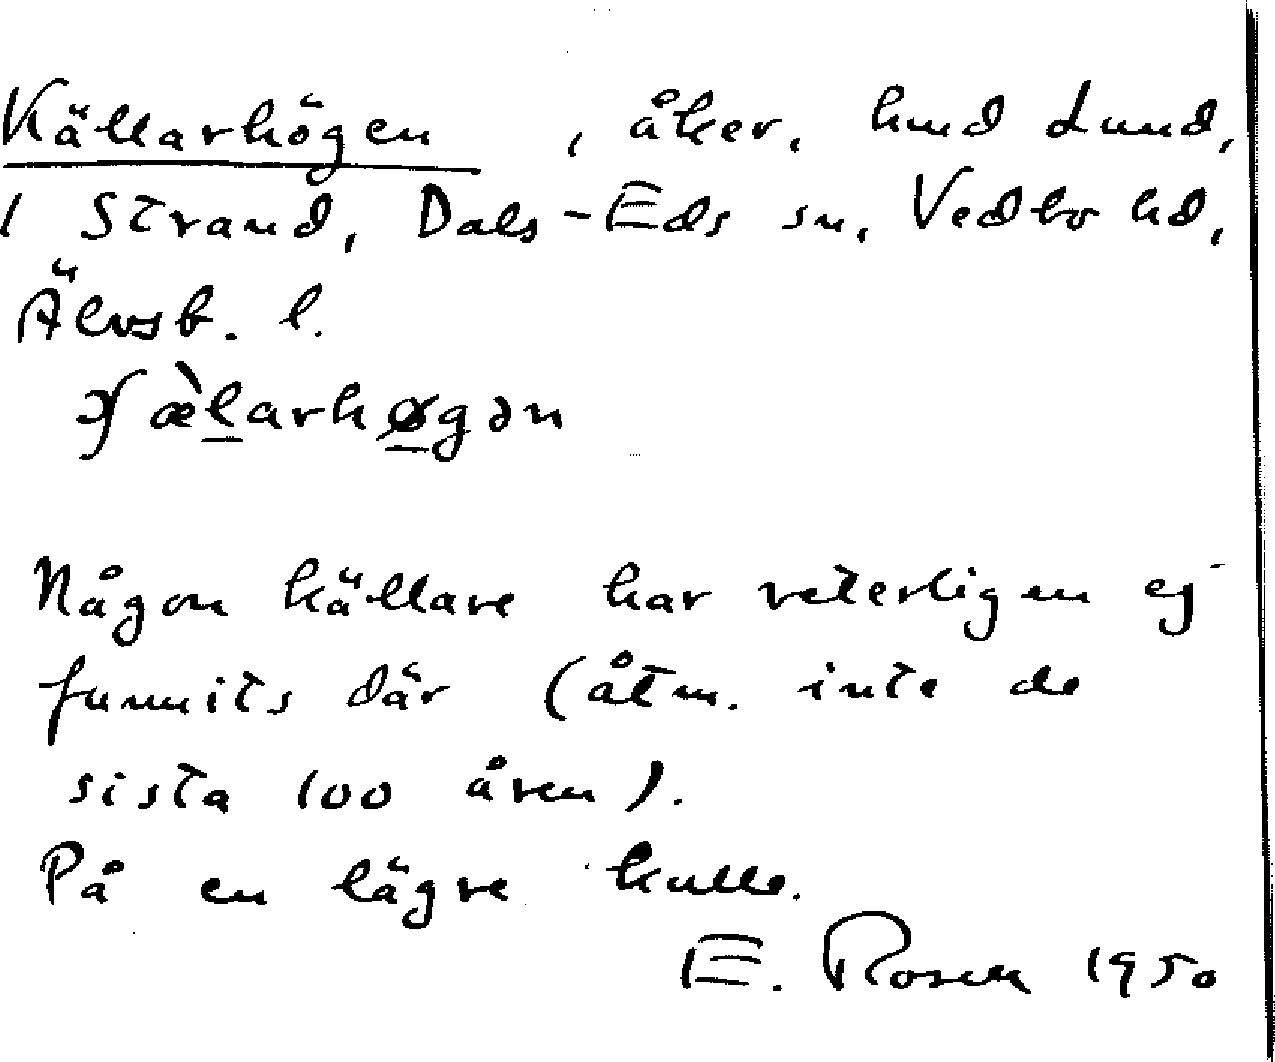 Källarhögen, åker, hmd Lund,
1 Strand, Dals-Eds sn, Vedbo hd,
Älvsb. l.
æ̀larhøgən
Någon källare har veterligen ej
funnits där (åtm. inte de
sista 100 åren).
På en lägre kulle.
E. Rosen 1950